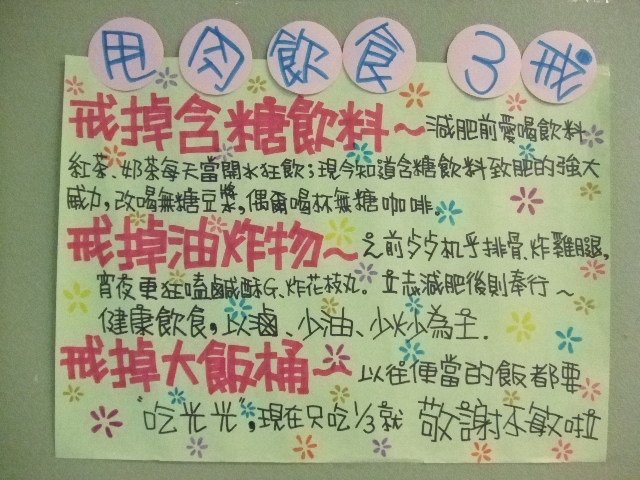 甩肉飲食3戒
戒掉含糖飲料~減肥前愛喝飲料
紅茶、奶茶每天當開水狂飲;現今知道含糖飲料致肥的強大
威力,改喝無糖豆漿,偶爾喝杯無糖咖啡。
戒掉油炸物~之前歺歺机乎排骨、炸雞腿,
宵夜更狂嗑鹹酥G、炸花枝丸。立志減肥後則奉行~
健康飲食,以滷、少油、少炒為主.
戒掉大飯桶~以往便當的飯都要
"吃光光",現在只吃1/3就 敬謝不敏啦